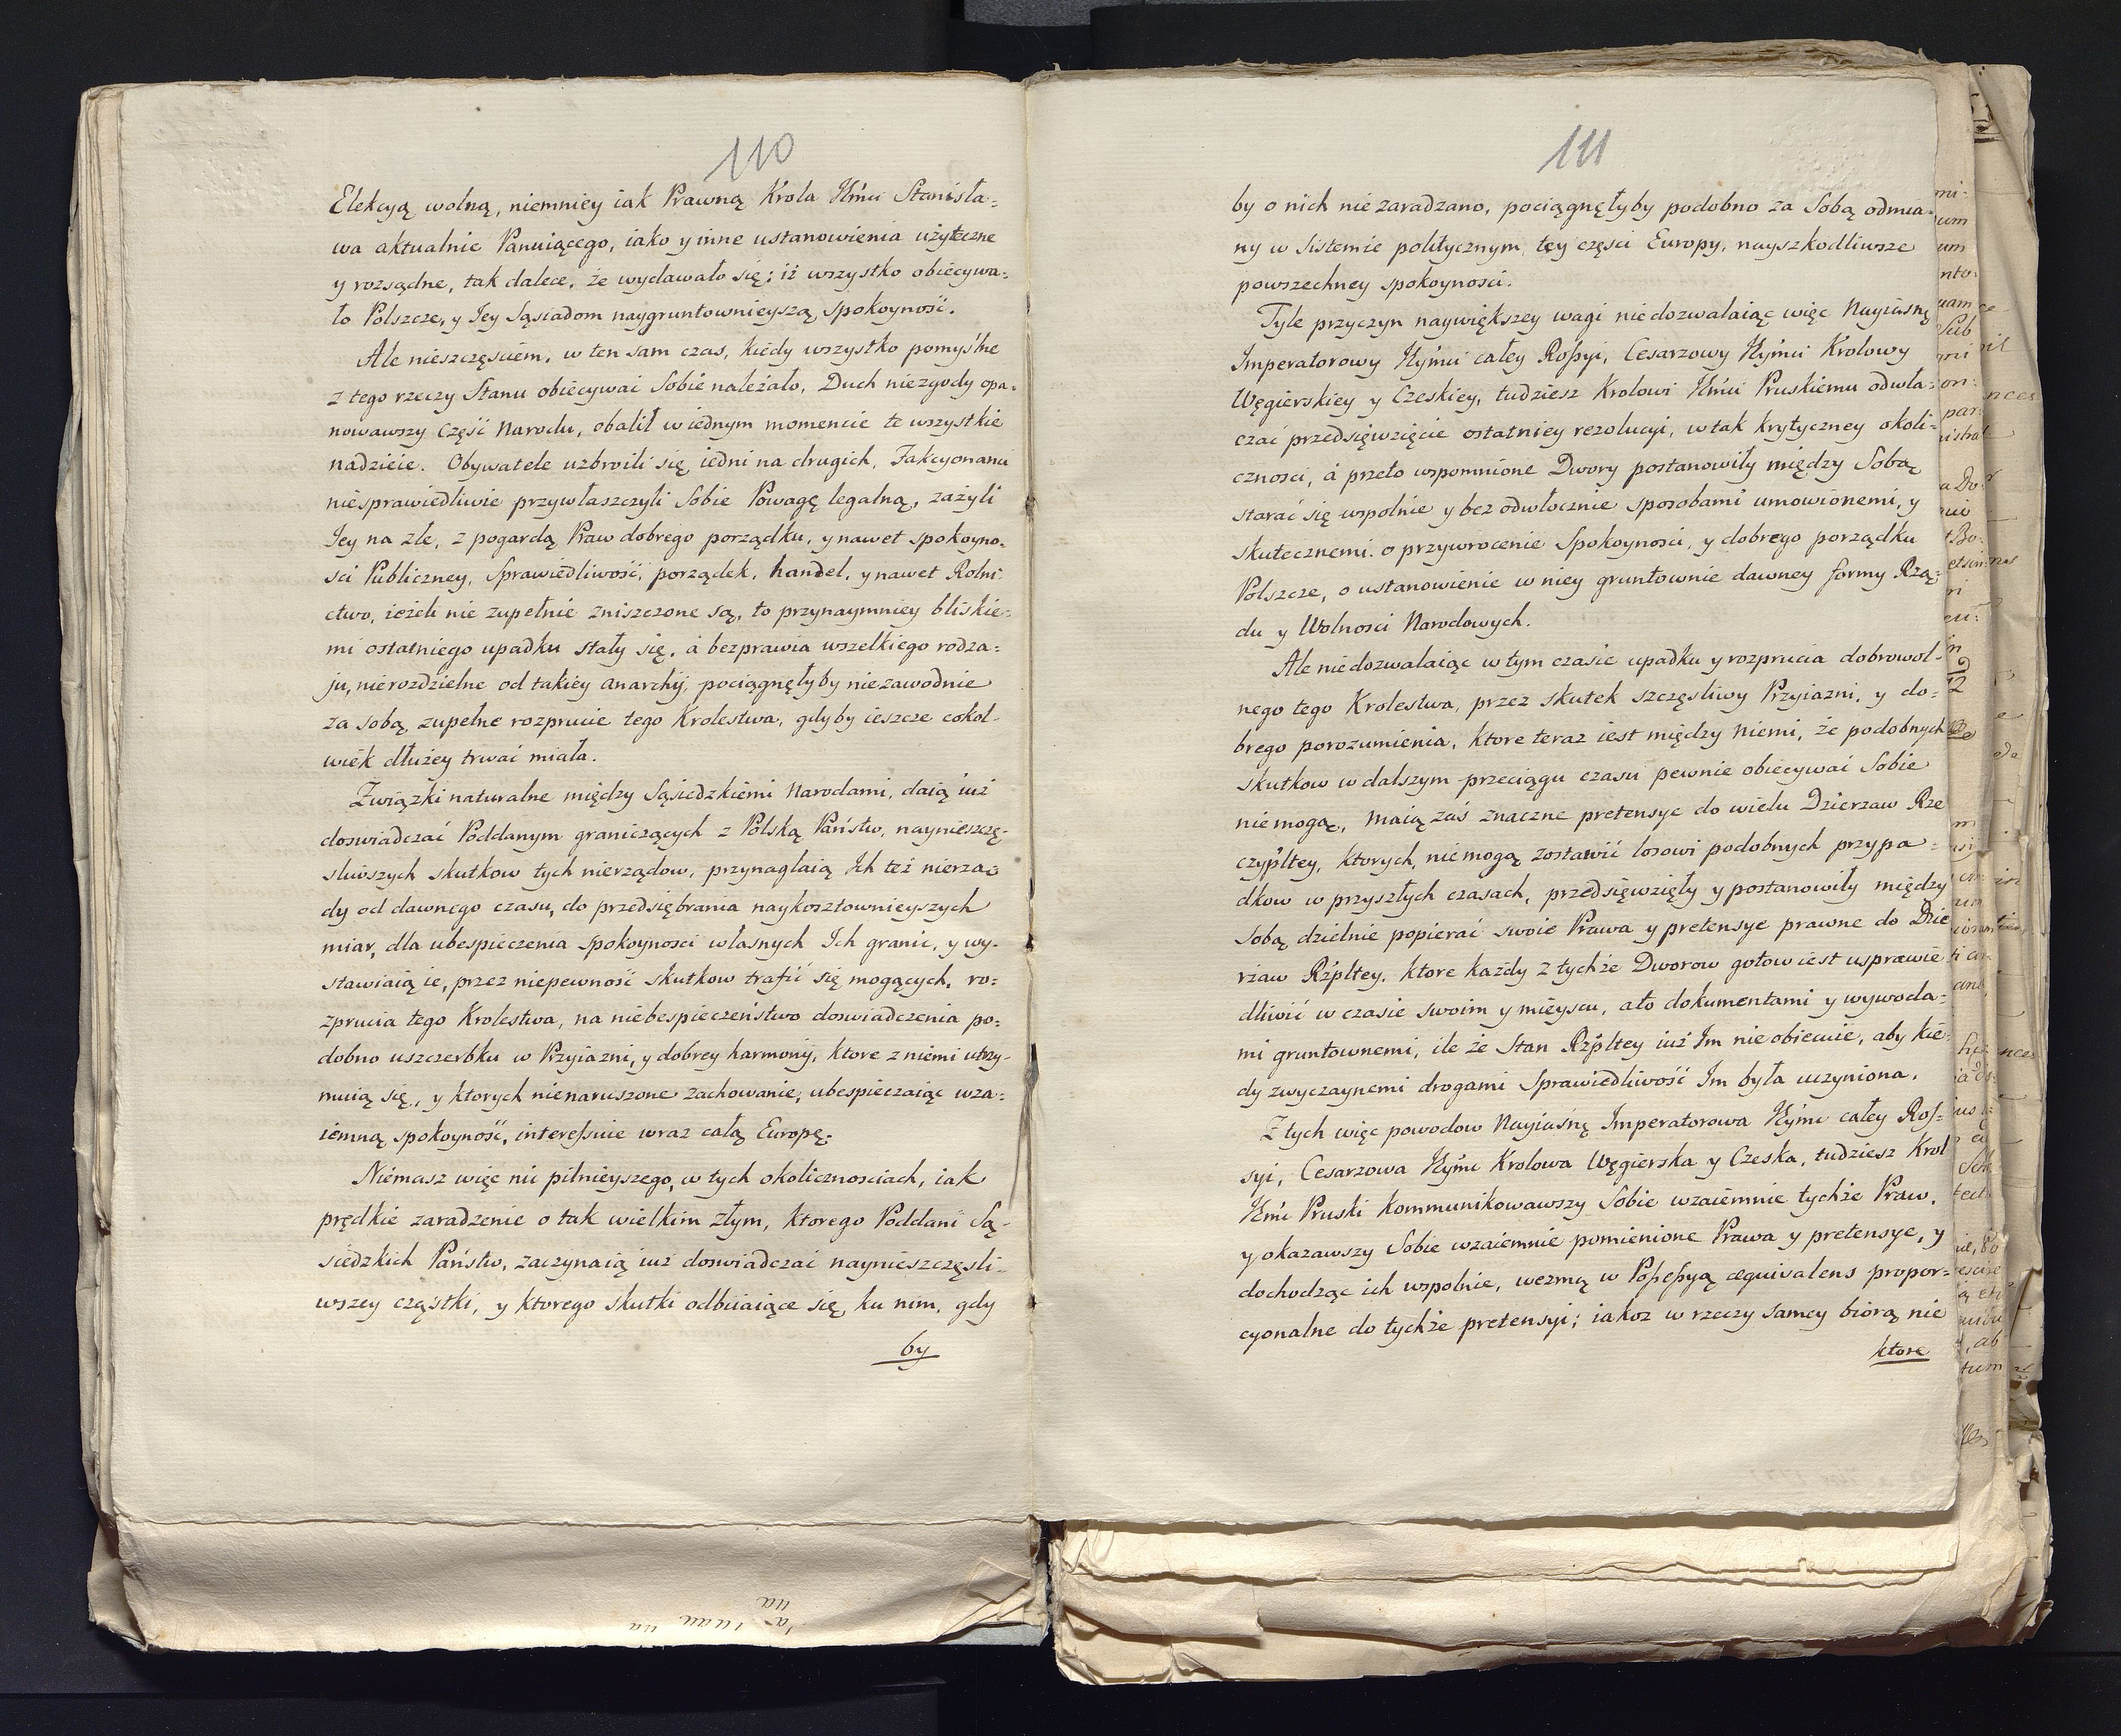 110
Elekcyą wolną, niemniey iak Prawną Krola Jmci Stanisła=
wa aktualnie Panuiącego, iako y inne ustanowienia użyteczne
y rozsądne, tak dalece, że wydawało się; iż wszystko obiecywa=
ło Polszcze, y Jey Sąsiadom naygruntownieyszą spokoyność.
Ale nieszczęsciem, w ten sam czas, kiedy wszystko pomyślne
z tego rzeczy Stanu obiecywać Sobie należało, Duch niezgody opa=
nowawszy Część Narodu, obalił w iednym momencie te wszystkie
nadzieie. Obywatele uzbroili się iedni na drugich, Fakcyonanci
niesprawiedliwie przywłaszczyli Sobie Powagę legalną, zażyli
Jey na złe, z pogardą Praw dobrego porządku, y nawet spokoyno=
sci Publiczney, Sprawiedliwość, porządek, handel, y nawet Rolni=
ctwo, ieżeli nie zupełnie zniszczone są, to przynaymniey bliskie=
mi ostatniego upadku stały się, á bezprawia wszelkiego rodza=
ju, nierozdzielne od takiey anarchij, pociągnęłyby niezawodnie
za sobą zupełne rozprucie tego Krolestwa, gdyby ieszcze cokol=
wiek dłużey trwać miała.
Związki naturalne między Sąsiedzkiemi Narodami, daią iuż
doswiadczać Poddanym graniczących z Polską Państw, naynieszczę=
sliwszych skutkow tych nierządow, przynaglaią Ich też nierzą=
dy od dawnego czasu, do przedsiębrania naykosztownieyszych
miar, dla ubespieczenia spokoynosci własnych Ich granic, y wy=
stawiaią ie, przez niepewność skutkow trafić się mogących, ro=
zprucia tego Krolestwa, na niebespieczeństwo doswiadczenia po=
dobno uszczerbku w Przyiazni, y dobrey harmonij, ktore z niemi utrzy=
muią się, y ktorych nienaruszone zachowanie, ubespieczaiąc wza=
iemną spokoyność, interessuie wraz całą Europę.
Niemasz więc nic pilnieyszego, w tych okolicznosciach, iak
prędkie zaradzenie o tak wielkim złym, ktorego Poddani Są=
siedzkich Państw, zaczynaią iuż doswiadczać naynieszczęsli=
wszey cząstki, y ktorego skutki odbiiaiące się ku nim, gdy
by
111
by o nich nie zaradzano, pociągnęłyby podobno za Sobą odmia=
ny w Sistemie politycznym tey części Europy, nayszkodliwsze
powszechney spokoynosci.
Tyle przyczyn naywiększey wagi niedozwalaiąc więc Nayiaśnę
Imperatorowy Jeymci całey Rossyi, Cesarzowy Jeymci Krolowy
Węgierskiey y Czeskiey, tudziesz Krolowi Jmci Pruskiemu odwła=
czać przedsięwzięcie ostatniey rezolucyi, w tak krytyczney okoli=
cznosci, á przeto wspomnione Dwory postanowiły między Sobą
starać się wspolnie y bez odwłocznie sposobami umowionemi, y
skutecznemi o przywrocenie Spokoynosci, y dobrego porządku
Polszcze, o ustanowienie w niey gruntownie dawney formy Rzą=
du y Wolnosci Narodowych.
Ale niedozwalaiąc w tym czasie upadku y rozprucia dobrowol=
nego tego Krolestwa, przez skutek szczęsliwy Przyiazni, y do=
brego porozumienia, ktore teraz iest między niemi, że podobnych
skutkow w dalszym przeciągu czasu pewnie obiecywać Sobie
niemogą, maią zaś znaczne pretensye do wielu Dzierzaw Rze
czypltey, ktorych niemogą zostawić losowi podobnych przypa=
dkow w przyszłych czasach, przedsięwzięły y postanowiły między
Sobą dzielnie popierać swoie Prawa y pretensye prawne do Dzie
rzaw Rzpltey, ktore każdy z tychże Dworow gotow iest usprawie
dliwić w czasie swoim y mieyscu, ato dokumentami y wywoda=
mi gruntownemi, ile że Stan Rzpltey iuż Im nie obiecuie, aby kie=
dy zwyczaynemi drogami Sprawiedliwość Im była uczyniona.
Z tych więc powodow Nayiaśnę Imperatorowa Jeymc całey Ros=
syi, Cesarzowa Jeymc Krolowa Węgierska y Czeska, tudziesz Krol
Jmc Pruski kommunikowawszy Sobie wzaiemnie tychże Praw,
y okazawszy Sobie wzaiemnie pomienione Prawa y pretensye, y
dochodząc ich wspolnie, wezmą w Possessyą æquivalens propor=
cyonalne do tychże pretensyi; iakoż w rzeczy samey biorą nie
ktore